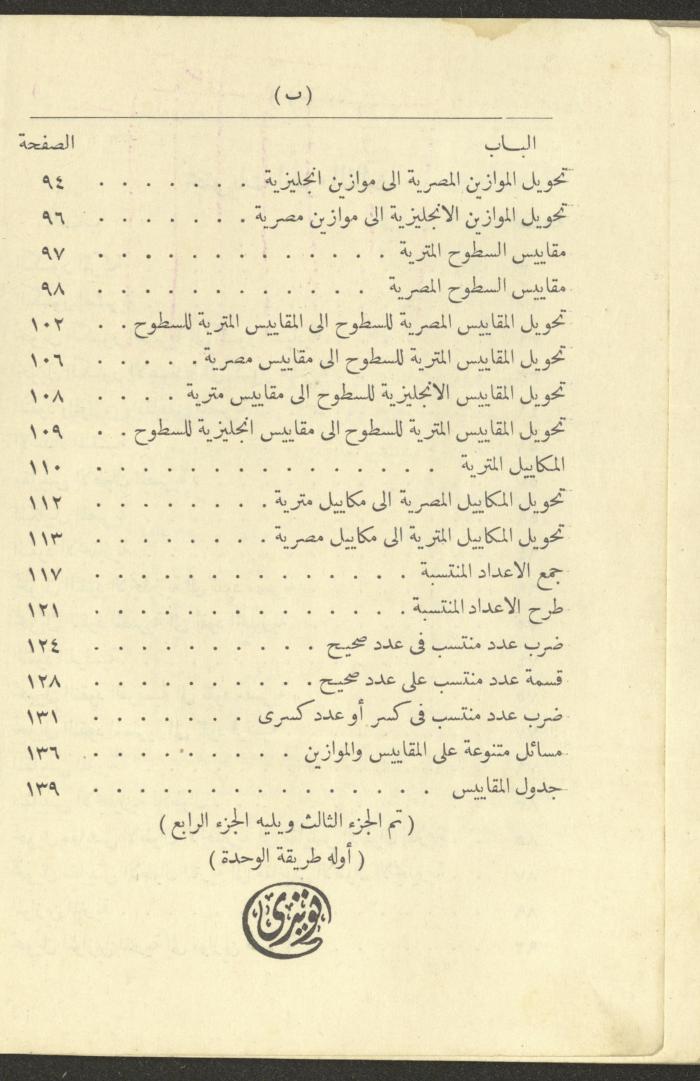 (ب)
الباب الصفحة
تحويل الموازين المصرية الى موازين انجليزية . . . . . . . ٩٤
تحويل الموازين الانجليزية الى موازين مصرية . . . . . . . ٩٦
مقاييس السطوح المترية . . . . . . . . . . . . . ٩٧
مقاييس السطوح المصرية . . . . . . . . . . . . ٩٨
تحويل المقاييس المصرية للسطوح الى المقاييس المترية للسطوح . . ١٠٢
تحويل المقاييس المترية للسطوح الى مقاييس مصرية . . . . . ١٠٦
تحويل المقاييس الانجليزية للسطوح الى مقاييس مترية . . . . ١٠٨
تحويل المقاييس المترية للسطوح الى مقاييس انجليزية للسطوح . . ١٠٩
المكاييل المترية . . . . . . . . . . . . . . . ١١٠
تحويل المكاييل المصرية الى مكاييل مترية . . . . . . . . ١١٢
تحويل المكاييل المترية الى مكاييل مصرية . . . . . . . . ١١٣
جمع الاعداد المنتسبة . . . . . . . . . . . . . ١١٧
طرح الاعداد المنتسبة . . . . . . . . . . . . . ١٢١
ضرب عدد منتسب فى عدد صحيح . . . . . . . . . . ١٢٤
قسمة عدد منتسب على عدد صحيح . . . . . . . . . . ١٢٨
ضرب عدد منتسب فى كسر أو عدد كسرى . . . . . . . ١٣١
مسائل متنوعة على المقاييس والموازين . . . . . . . . . ١٣٦
جدول المقاييس . . . . . . . . . . . . . . . ١٣٩
(تم الجزء الثالث ويليه الجزء الرابع)
(أوله طريقة الوحدة)